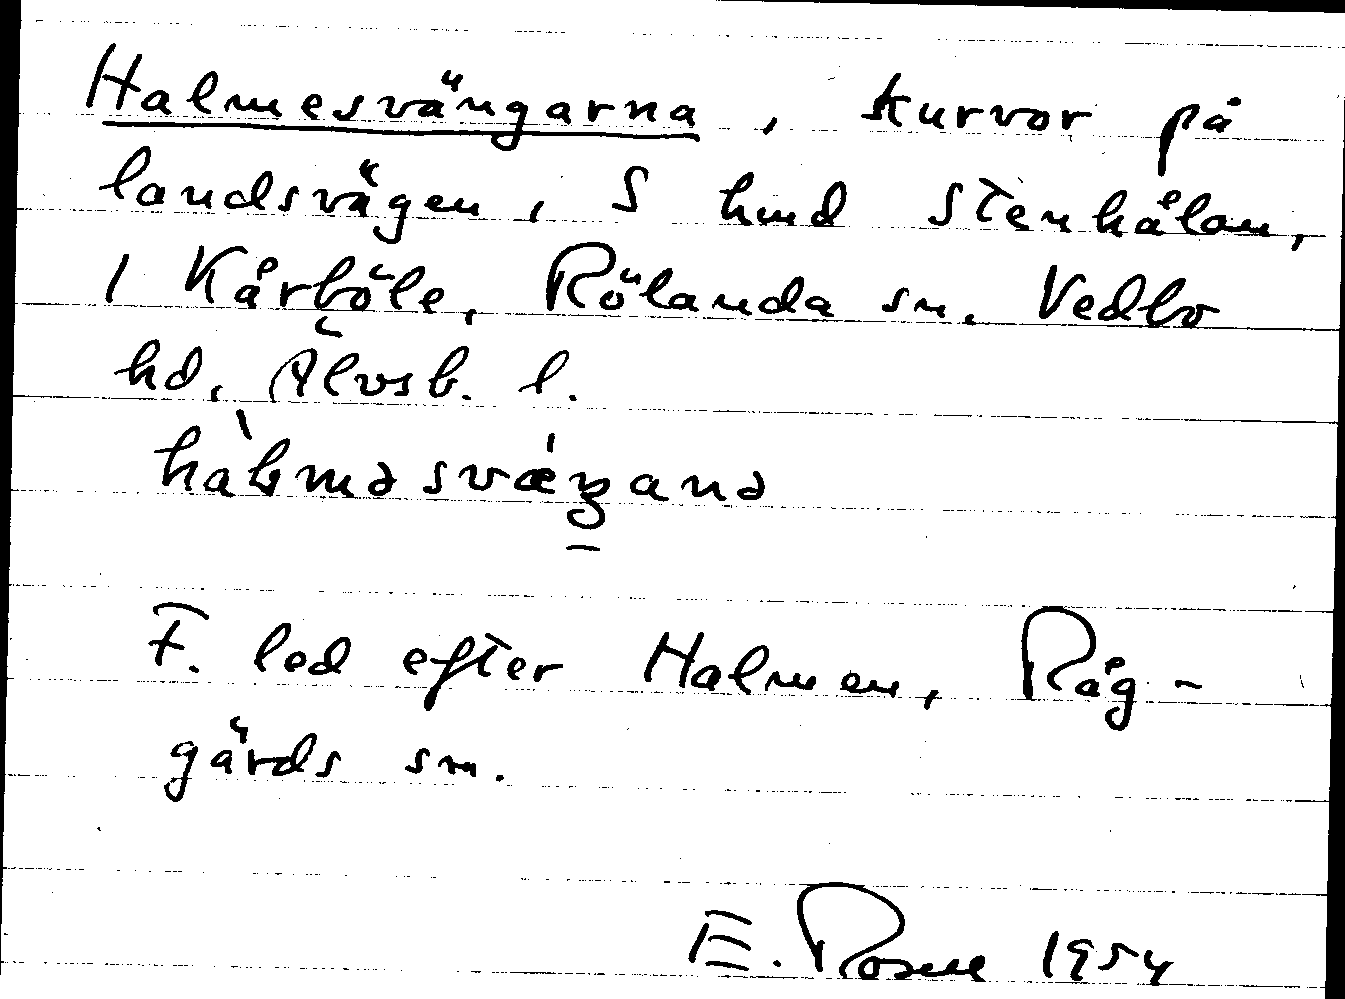 Halmesvängarna, kurvor på
landsvägen, S hmd Stenhålan,
i Kårböle, Rölanda sn. Vedbo
hd, Älvsb. l.
F. led efter Halmen, Råg-
gärds sn.
E. Rosell 1954